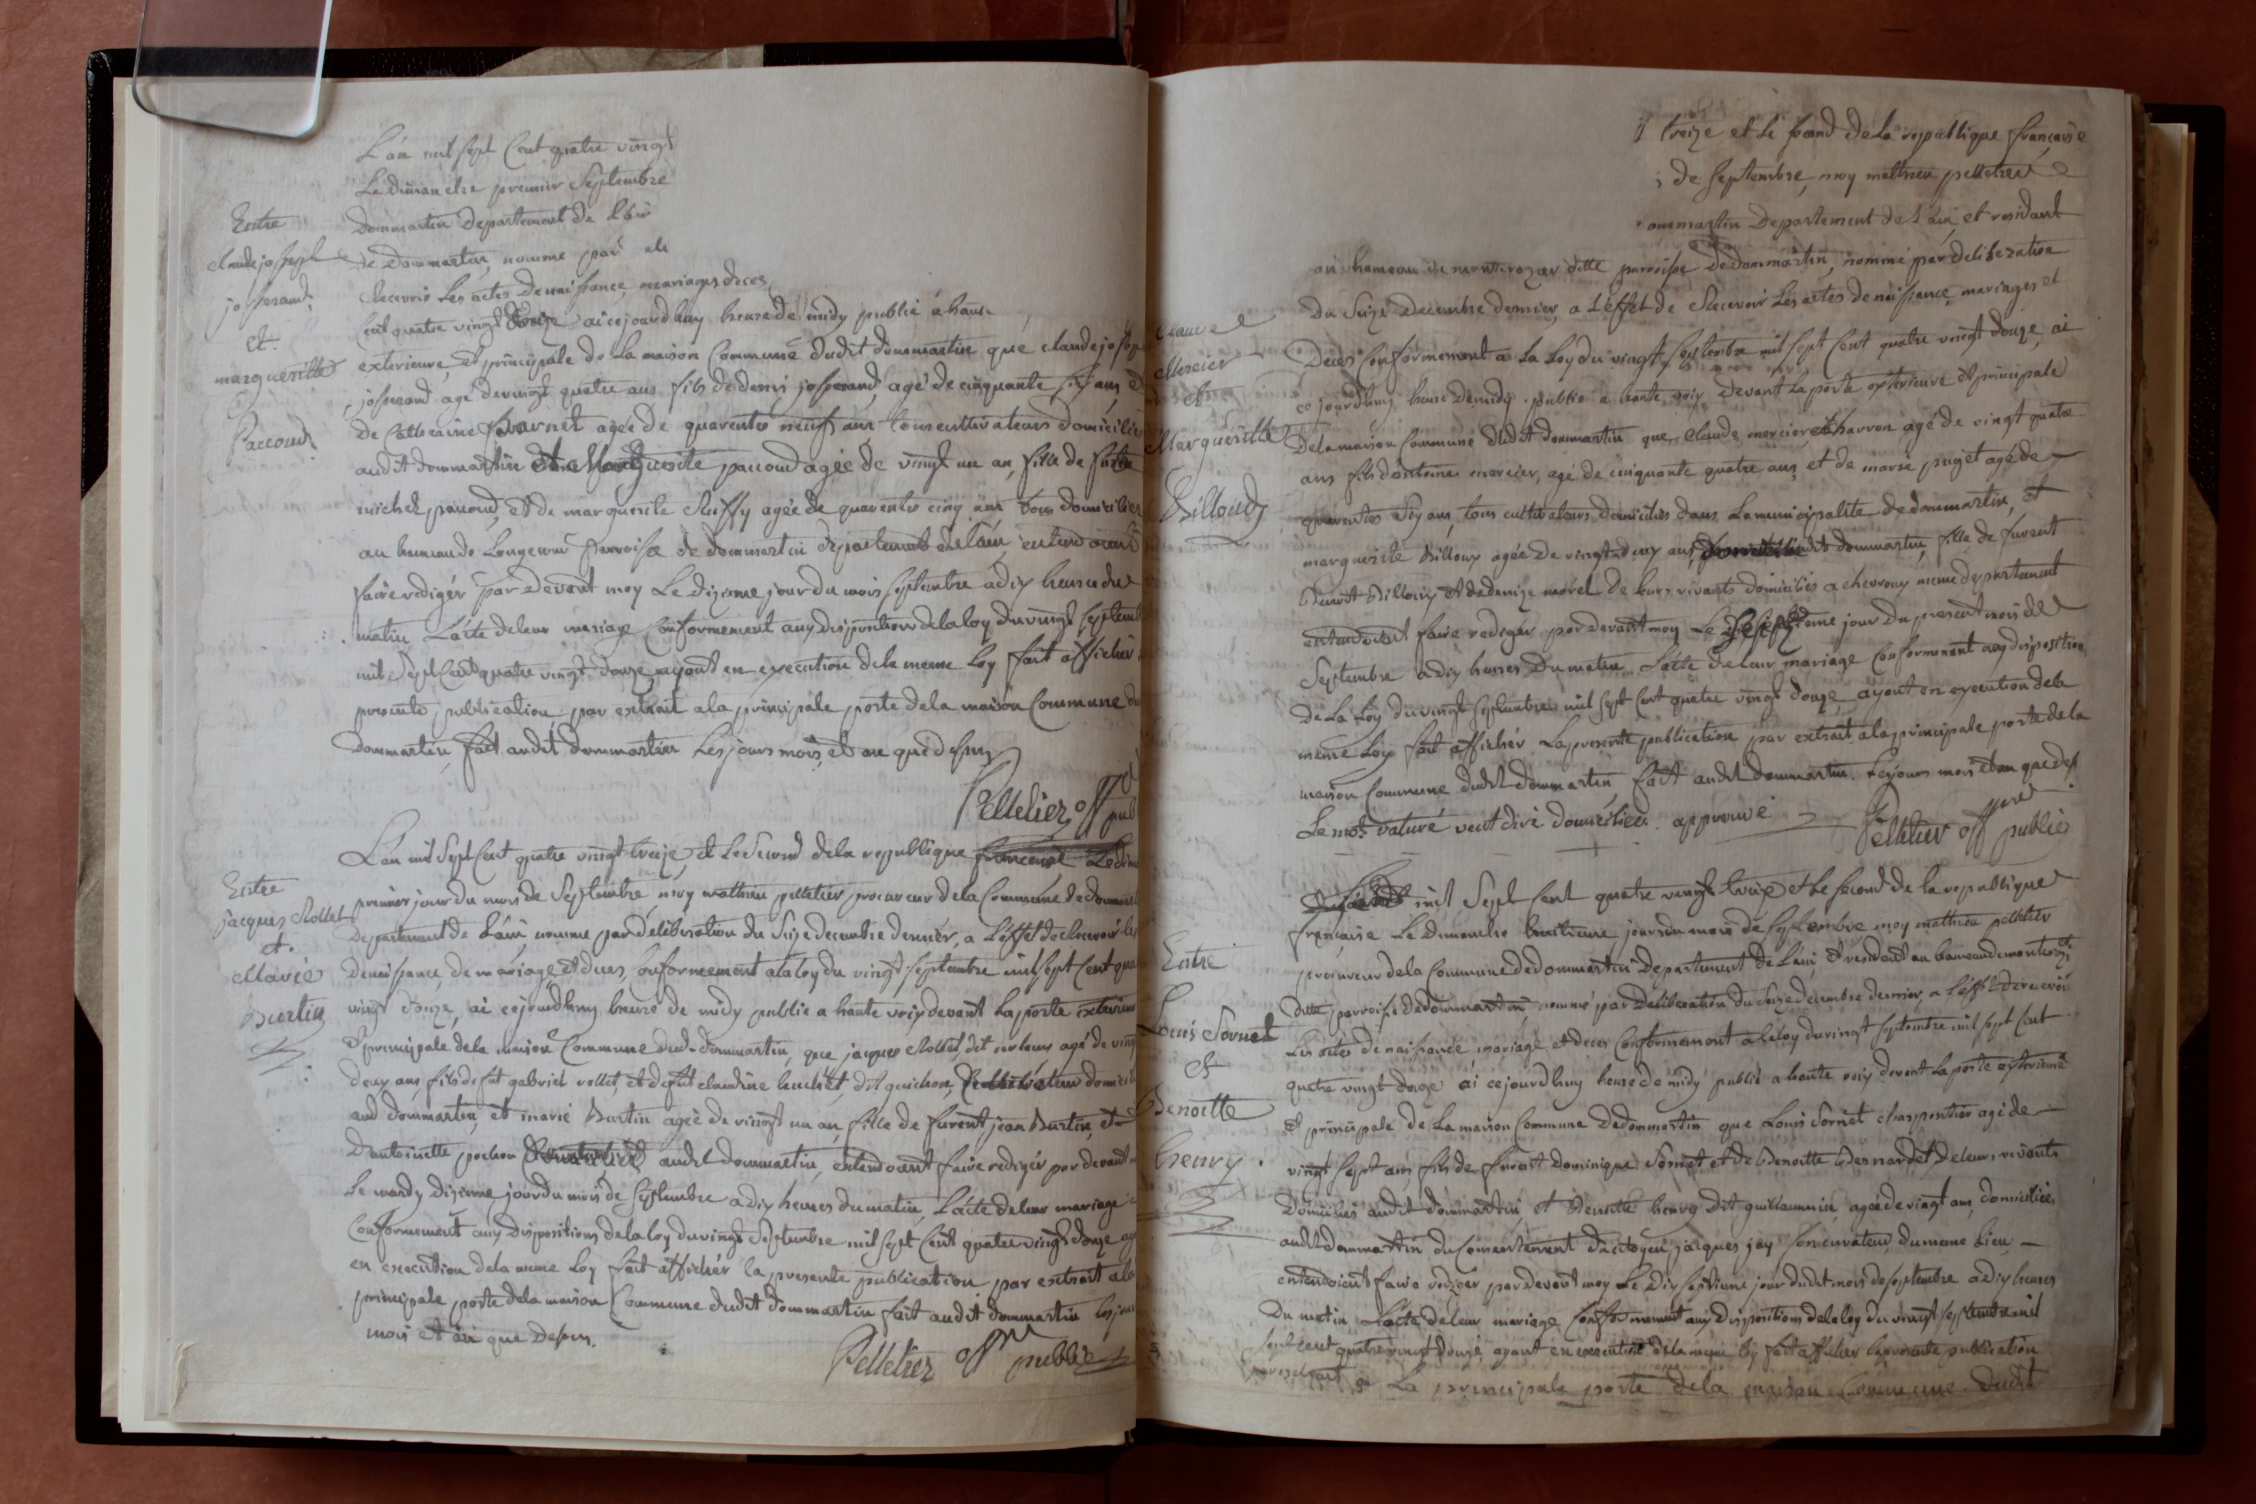 L'an mil sept Cent quatre vingt
Le dimanche premier Septembre
dommartin departement de l'ain
de dommartin, nomme par
Recevoir Les actes de naissance, mariages deces,
Cent quatre vingt douze ai cejourdhuy heure de midy publié a haute
exterieure, et principale de la maison Commune dudit dommartin que claude joseph
josserand agé de vingt quatre ans fils de denis josserand, agé de cinquante six ans et
de Catherine agée de quarente neuf ans tous cultivateurs domiciliés
audit dommartin et Marguerite pacoud agée de vingt un an, fille de
michel pacoud, et de marguerite Ruffy agée de quarente cinq ans tous domiciliés
au hameau de Longecour parroisse de dommartin departement de l'ain entendoient
faire redigér par devant moy Le dixieme jour du mois septembre a dix heures du
matin L'acte de leur mariage Conformement aux disposition de la loy du vingt septembre
mil Sept Cent quatre vingt douze, ayant en execution de la meme Loy fait afficher
presente publication par extrait a la principale porte de la maison Commune du
dommartin, fait audit dommartin Les jours mois, et an que desus
Pelletier off pub
Entre
claude joseph
josserand
et.
marguerite
Pacoud
L'an mil Sept Cent quatre vingt treize, et Le Second de la republique francaise Le dim
premier jour du mois de Septembre moy mathieu pelletier procureur de la Commune de dommart
Departement de L'ain, nomme par déliberation du Seize decembre dernier, a L'effet de Recevoir les
de naissance, de mariage et deces, Conformement a la loy du vingt septembre mil sept Cent qua
vingt douze, ai cejourdhuy heure de midy publié a haute voix devant La porte exterieure
et principale de la maison Commune dud. dommartin, que jacques Rollet, dit agé de vingt
deux ans, fils de fut gabriel rollet, et de fut claudine dit guichon, domicilié
aud dommartin, et marie Burtin agée de vingt un an, fille de furent jean Burtin, et
d'antoinette pochon audit dommartin, entendoient faire redigér par devant
Le mardy dixieme jour du mois de Septembre a dix heures du matin, L'acte de leur mariage
Conformement aux Dispositions de la loy du vingt Septembre mil sept Cent quatre vingt douze ay
en execution de la meme Loy fait affichér la presente publication par extrait a la
principale porte de la maison Commune dudit dommartin fait audit dommartin les jours
mois et an que desus.
Pelletier off public
Entre
jacques Rollet
et.
Marie
Burtin
treize et le second de la republique francaise
de septembre, moy mathieu pelletier
ommartin Departement de L'ain, et residant
au hameau de ditte parroisse de dommartin, nommé par deliberation
du Seize Decembre dernier, a L'effet de Recevoir Les actes de naissance, mariages et
Deces Conformement a La Loy du vingt, Septembre mil sept Cent quatre vingt douze, ai
ce jourdhuy heure de midy publié a haute voix devant La porte exterieure et principale
de la maison Commune dudit dommartin que, claude mercier charron agé de vingt quatre
ans fils d'antoine mercier, agé de cinquante quatre ans, et de marie puget agée de
quarente Six ans, tous cultivateurs domiciliés dans La municipalité de dommartin, et
marguerite Billoux agée de vingt deux ans, dommartin, fille de furent
Benoit Billoux, et de denize morel de leurs vivants domiciliés a chevroux meme departement
entendoient faire redigér par devant moy Le jour du present mois de
Septembre a dix heures du matin L'acte de leur mariage Conformement aux disposition
de La Loy du vingt Septembre mil sept Cent quatre vingt douze, ayant en execution de la
meme Loy fait affichér La presente publication par extrait a la principale porte de la
maison Commune dudit dommartin, fait audit dommartin. Les jours mois et an que des
Le mot raturé veut dire domiciliée. approuvé
Pelletier off public
Mercier
et
Marguerite
Billoud
mil Sept Cent quatre vingt treize et Le second de la republique
française Le dimanche huitieme jour du mois de Septembre moy mathieu pelletier
procureur de la Commune de dommartin Departement de L'ain, et residant au hameau de
ditte parroisse de dommartin nommé par Deliberation du Seize decembre dernier, a L'effet de recevoir
Les actes de naissance, mariage et deces Conformement a la loy du vingt septembre mil sept Cent
quatre vingt douze ai cejourdhuy heure de midy publié a haute voix devant La porte exterieure
et principale de La maison Commune de dommartin que Louis Sornet charpentier agé de
vingt sept ans fils de furent dominique Sornet et de Benoitte Bernardet de leurs vivants
Domiciliés audit dommartin et Benoitte henry dit guillaumin, agée de vingt ans, domiciliée
audit dommartin du Consentement du citoyen jacques jay Son curateur du meme Lieu
entendoient faire rediger par devant moy Le dix septieme jour dudit mois de septembre a dix heures
Du matin L'acte de leur mariage Conformement aux Dispositions de la loy du vingt septembre mil
sept cent quatre vingt douze, ayant en execution de la meme loy fait afficher la presente publication
par extrait a La principale porte de la maison Commune dudit
Entre
Louis Sornet
et
Benoitte
henry.